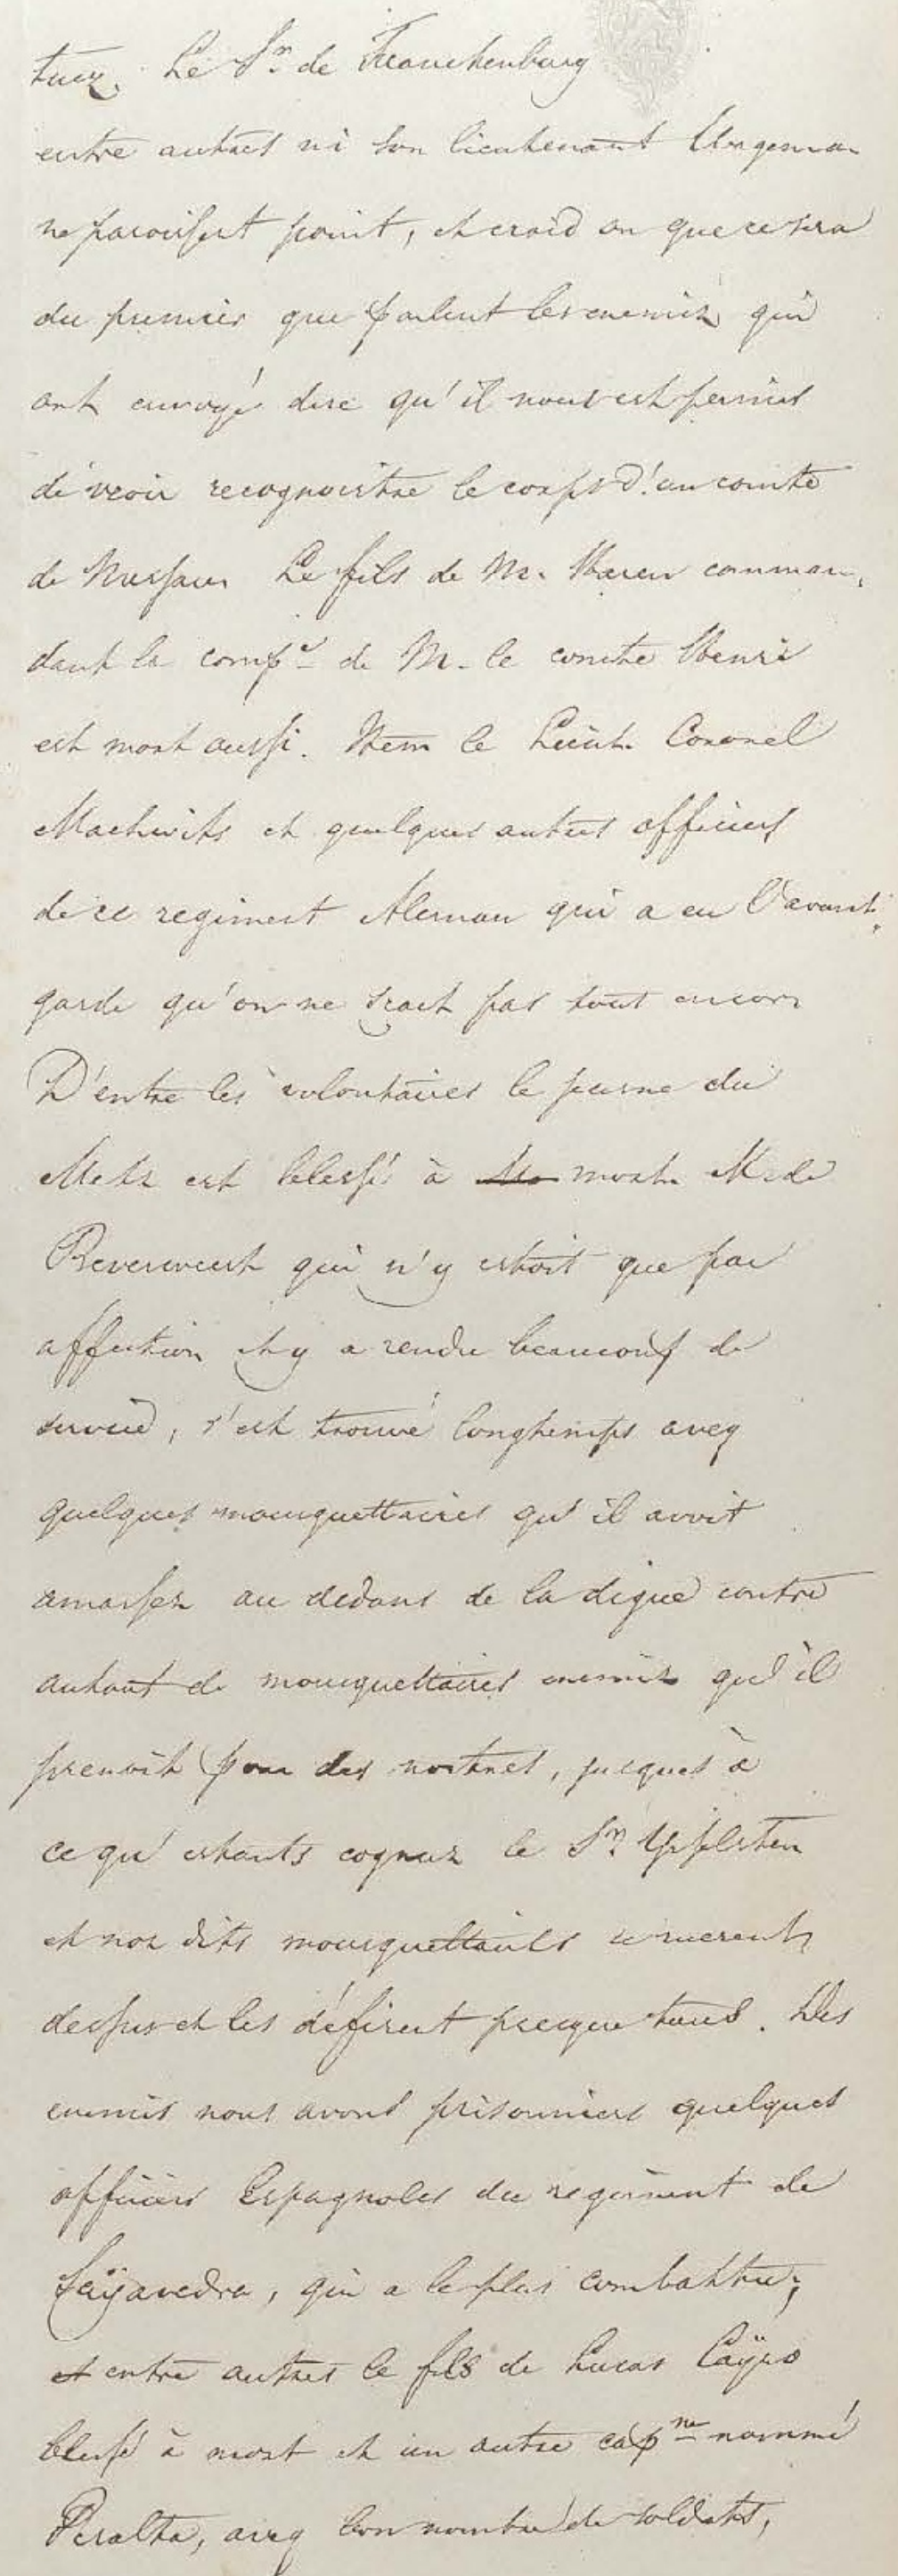 tuez. Le Sr. de Franckenburg
entre autres ni son lieutenant
ne paroissent point, et croid on que ce sera
du premier que parlent les ennemis, qui
ont envoyé dire qu'il nous est permis
de venir recognoistre le corps d'un comte
de Nassau. Le fils de M. Haren comman„
dant la compe. de M. le comte Henri
est mort aussi. Item le Lieut. Coronel
et quelques autres officiers
de ce regiment Aleman qui a eu l'avant„
garde qu'on ne sçait pas tout encor.
D'entre les volontaires le jeune du
Metz est blessé à mort. M. de
Beverweert qui n'y estoit que par
affection et y a rendu beaucoup de
service, s'est trouvé longtemps aveq
quelques mousquettaires qu'il avoit
amassez au dedans de la digue contre
autant de mousquettaires ennemis qu'il
prenoit pour des nostres, jusques à
ce qu'estants cognuz le Sr. Ysselstein
et nos dits mousquettaires se ruerent
dessus et les défirent presque tous. Des
ennemis nous avons prisonniers quelques
officiers Espagnoles du regiment de
Saÿavedra, qui a le plus combattu;
et entre autres le fils de Lucas Caÿro
blessé à mort et un autre capne. nommé
Peralta, aveq bon nombre de soldats,